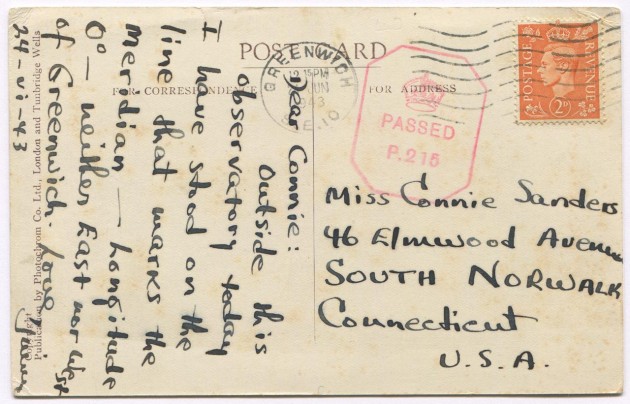 POST CARD
FOR CORRESPONDENCE
FOR ADDRESS
GREENWICH
12.15PM
JUN
1943
S.E.10
POSTAGE
REVENUE
2D
PASSED
P.215
Dear Connie:
Outside this
observatory today
I have stood on the
line that marks the
Meridian — Longitude
0° — neither East nor West
of Greenwich. Love
24-vi-43
Miss Connie Sanders
46 Elmwood Avenue
SOUTH NORWALK
Connecticut
U.S.A.
Copyright
Publication by Photochrom Co. Ltd., London and Tunbridge Wells